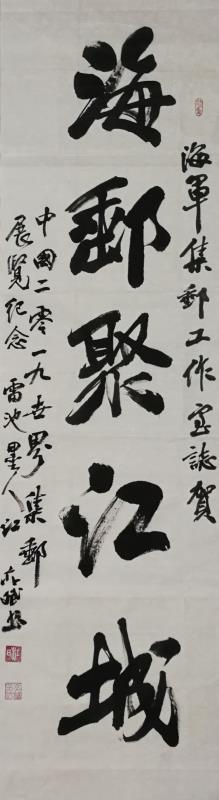 海軍集郵工作室誌賀
海郵聚江城
中國二零一九世界集郵
展覽紀念 雷池墨人江